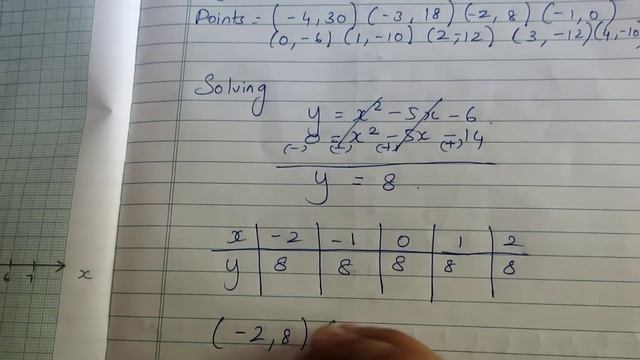 Points = (-4,30) (-3, 18) (-2, 8) (-1, 0)
(0,-6) (1,-10) (2,-12) (3,-12) (4,-10
Solving
y = x² - 5x - 6
0 = x² - 5x - 14
(-) (-) (+) (+)
y = 8
x -2 -1 0 1 2
y 8 8 8 8 8
(-2,8) (
6 7 x